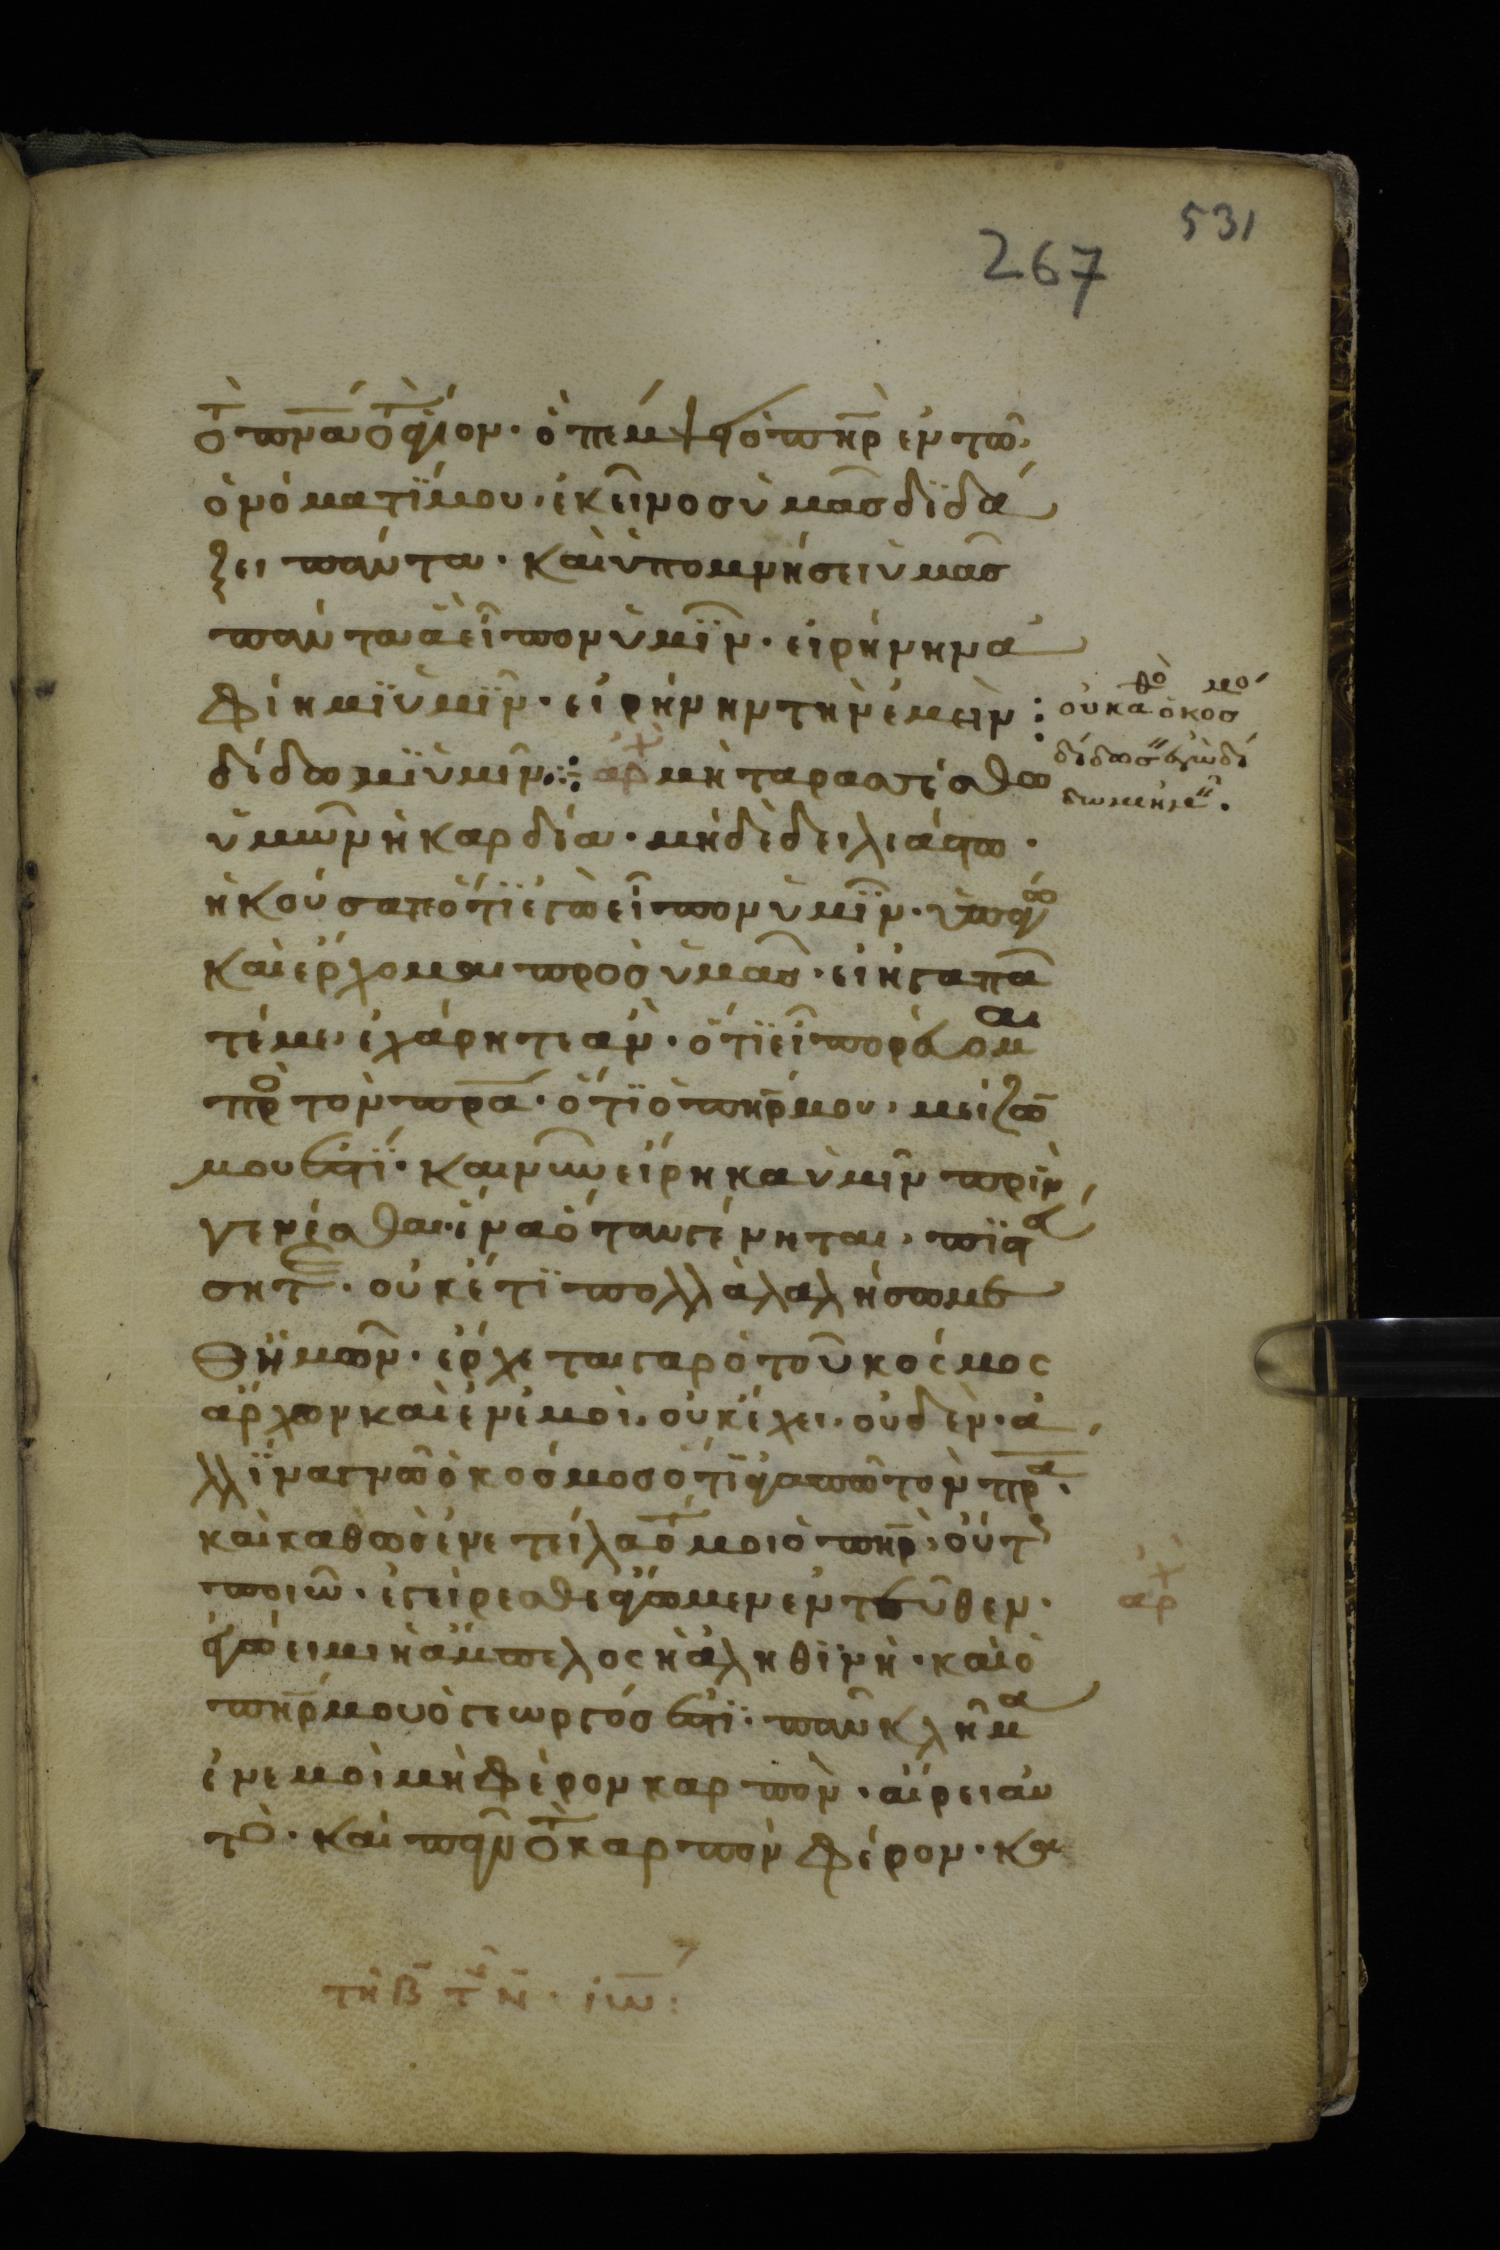 531
267
τὸ πνα τὸ ἅγιον· ὃ πέμψει ὁ πηρ ἐν τῶ
ὀνόματϊ μου, ἐκεῖνος ὑμᾶσ διδά
ξει πάντα· καὶ ὑπομνήσει ὑμᾶσ
πάντα ἃ εἶπον ὑμῖν· εἰρήνην ἀ
φίημϊ ὑμῖν· εἰρήνην τὴν ἐμεὶν :
οὐ καθὸ ὁ κόσμο
δίδωσϊν ἐγὼ δί
δωμη ὑμῖν.
δίδωμϊ ὑμῖν : ἀρχ μὴ ταρασσέσθω
ὑμῶν ἡ καρδία· μηδὲ δειλιάτω·
ἠκούσατε ὅτϊ ἐγὼ εἶπον ὑμῖν· ὑπάγω
καὶ ἔρχομαι πρὸσ ὑμᾶσ· εἰ ἠγαπᾶ
τέ με, ἐχάρητε ἄν· ὅτϊ εἶπον πορεύομαι
πρὸς τὸν πρα· ὅτϊ ὁ πηρ μου, μείζων
μου ἐστΐ· καὶ νῦν εἴρηκα ὑμῖν πρὶν
γενέσθαι· ἵνα ὅταν γένηται, πϊστεύ
σητε· οὐκέτϊ πολλὰ λαλήσω με
θ ἡμῶν· ἔρχεται γὰρ ὁ τοῦ κόσμος
ἄρχων καὶ ἐν ἐμοὶ, οὐκ ἔχει, οὐδέν· ἀ
λλ ἵνα γνῶ ὁ κόσμοσ ὅτϊ ἀγαπῶ τὸν πρα·
καὶ καθὼσ ἐνετείλατό μοι ὁ πηρ, οὕτως
ποιῶ· ἐγείρεσθε ἄγωμεν ἐντεῦθεν·
ἀρχ
ἐγώ ειμι ἡ ἄμπελος ἡ ἀληθϊνὴ· καὶ ὁ
πηρ μου ὁ γεωργόσ ἐστϊ· πᾶν κλῆμα
ἐν ἐμοὶ μὴ φέρον καρπὸν· αἴρει αὐ
τὸ· καὶ πᾶν τὸ καρπὸν φέρον· κα
τῇ β τῆς ν· ιω: